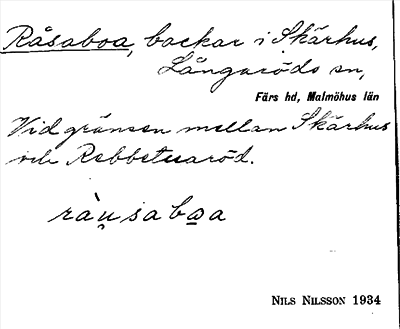 Råsaboa, backar i Skärhus,
Långaröds sn,
Färs hd, Malmöhus län
Vid gränsen mellan Skärhus
och Rebbetuaröd.
ràu̯sabo̲a
NILS NILSSON 1934